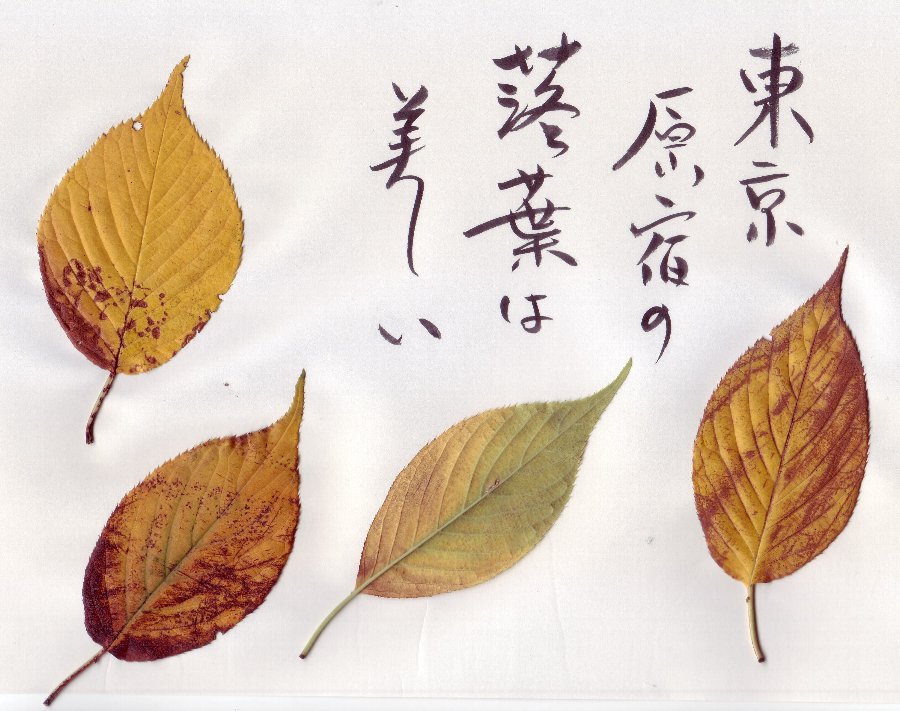 東京
原宿の
落葉は
美しい